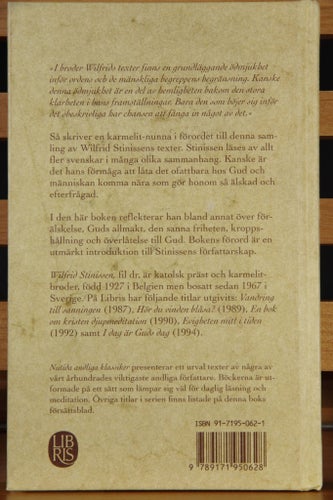 »I broder Wilfrids texter finns en grundläggande ödmjukhet
inför ordens och de mänskliga begreppens begränsning. Kanske
denna ödmjukhet är en del av hemligheten bakom den stora
klarheten i hans framställningar. Bara den som böjer sig inför
det obeskrivliga har chansen att fånga in något av det.»
Så skriver en karmelit-nunna i förordet till denna sam-
ling av Wilfrid Stinissens texter. Stinissen läses av allt
fler svenskar i många olika sammanhang. Kanske är
det hans förmåga att låta det ofattbara hos Gud och
människan komma nära som gör honom så älskad och
efterfrågad.
I den här boken reflekterar han bland annat över för-
älskelse, Guds allmakt, den sanna friheten, kropps-
hållning och överlåtelse till Gud. Bokens förord är en
utmärkt introduktion till Stinissens författarskap.
Wilfrid Stinissen, fil dr, är katolsk präst och karmelit-
broder, född 1927 i Belgien men bosatt sedan 1967 i
Sverige. På Libris har följande titlar utgivits: Vandring
till sanningen (1987), Hör du vinden blåsa? (1989), En bok
om kristen djupmeditation (1990), Evigheten mitt i tiden
(1992) samt I dag är Guds dag (1994).
Nutida andliga klassiker presenterar ett urval texter av några av
vårt århundrades viktigaste andliga författare. Böckerna är ut-
formade på ett sätt som lämpar sig väl för daglig läsning och
meditation. Övriga titlar i serien finns listade på denna boks
försättsblad.
LIB
RIS
ISBN 91-7195-062-1
9 789171 950628